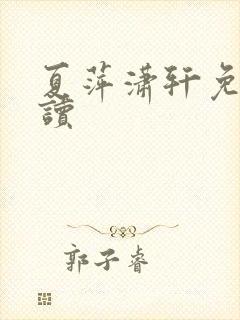 夏萍潇轩免
讀
郭子睿